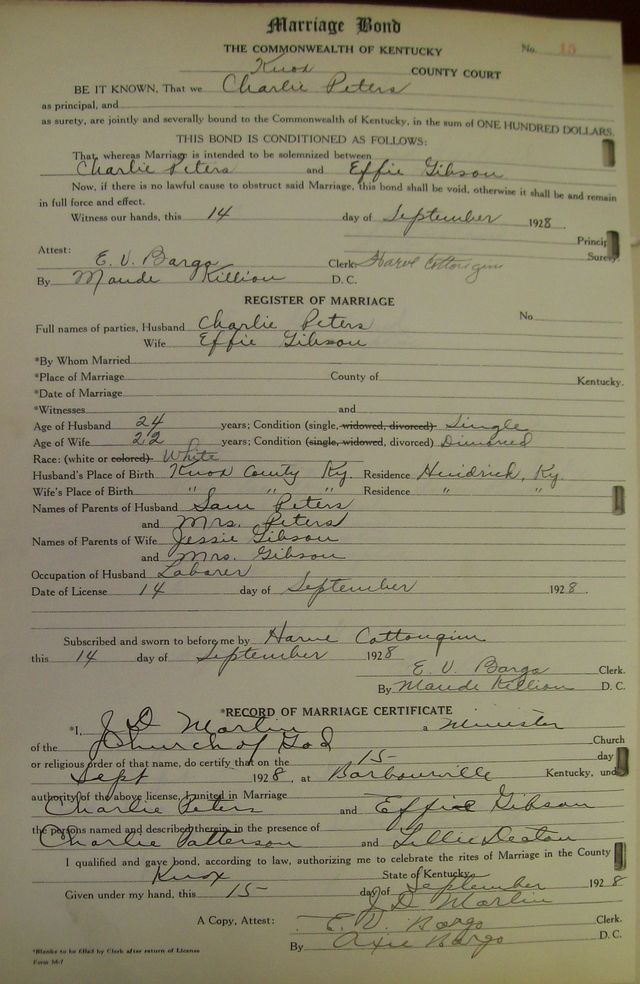 Marriage Bond
THE COMMONWEALTH OF KENTUCKY No. 15
Knox COUNTY COURT
BE IT KNOWN, That we Charlie Peters
as principal, and
as surety, are jointly and severally bound to the Commonwealth of Kentucky, in the sum of ONE HUNDRED DOLLARS.
THIS BOND IS CONDITIONED AS FOLLOWS:
That, whereas Marriage is intended to be solemnized between
Charlie Peters and Effie Gibson
Now, if there is no lawful cause to obstruct said Marriage, this bond shall be void, otherwise it shall be and remain
in full force and effect.
Witness our hands, this 14 day of September 1928.
Princip
Attest: Surety.
E. V. Bargo Clerk. Harve Cottongim
By Maude Killion D. C.
REGISTER OF MARRIAGE
Full names of parties, Husband Charlie Peters No.
Wife Effie Gibson
*By Whom Married
*Place of Marriage County of Kentucky.
*Date of Marriage
*Witnesses and
Age of Husband 24 years; Condition (single, widowed, divorced) Single
Age of Wife 22 years; Condition (single, widowed, divorced) Divorced
Race: (white or colored) White
Husband's Place of Birth Knox County Ky. Residence Heidrick, Ky.
Wife's Place of Birth " " " Residence " "
Names of Parents of Husband Sam Peters
and Mrs. Peters
Names of Parents of Wife Jessie Gibson
and Mrs. Gibson
Occupation of Husband Laborer
Date of License 14 day of September 1928.
Subscribed and sworn to before me by Harve Cottongim
this 14 day of September 1928
E. V. Bargo Clerk.
By Maude Killion D. C.
*RECORD OF MARRIAGE CERTIFICATE
*I, J D Martin a Minister
of the Church of God Church
or religious order of that name, do certify that on the 15 day
Sept 1928, at Barbourville Kentucky, und
authority of the above license, I united in Marriage
Charlie Peters and Effie Gibson
the persons named and described therein in the presence of
Charlie Patterson and Lillie Deaton
I qualified and gave bond, according to law, authorizing me to celebrate the rites of Marriage in the County
Knox State of Kentucky
Given under my hand, this 15 day of September 1928
J D Martin
A Copy, Attest: E. V. Bargo Clerk.
By Axie Bargo D. C.
*Blanks to be filled by Clerk after return of License
Form M-1